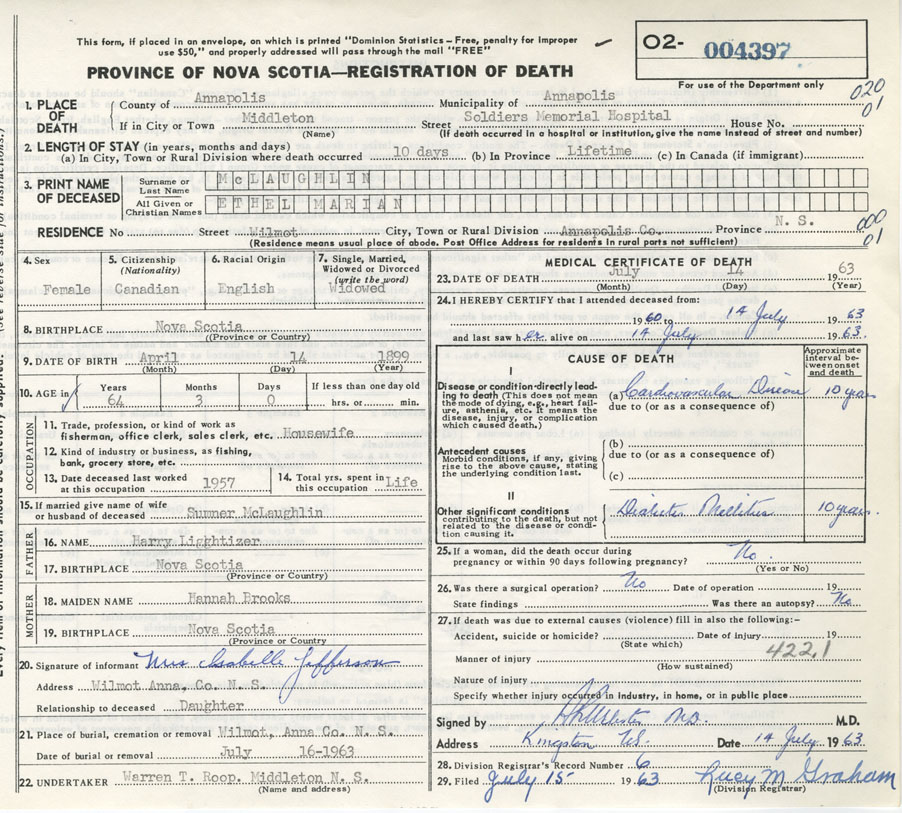 This form, if placed in an envelope, on which is printed "Dominion Statistics – Free, penalty for improper
use $50," and properly addressed will pass through the mail "FREE"
O2- 004397
PROVINCE OF NOVA SCOTIA—REGISTRATION OF DEATH
For use of the Department only
020
01
1. PLACE OF DEATH
County of Annapolis Municipality of Annapolis
If in City or Town Middleton Street Soldiers Memorial Hospital House No.
(Name) (If death occurred in a hospital or institution, give the name instead of street and number)
2. LENGTH OF STAY (in years, months and days)
(a) In City, Town or Rural Division where death occurred 10 days (b) In Province Lifetime (c) In Canada (if immigrant)
3. PRINT NAME OF DECEASED
Surname or Last Name McLAUGHLIN
All Given or Christian Names ETHEL MARIAN
RESIDENCE No Street Wilmot City, Town or Rural Division Annapolis Co. Province N. S.
(Residence means usual place of abode. Post Office Address for residents in rural parts not sufficient)
000
01
4. Sex Female
5. Citizenship (Nationality) Canadian
6. Racial Origin English
7. Single, Married, Widowed or Divorced (write the word) Widowed
8. BIRTHPLACE Nova Scotia
((Province or Country)
9. DATE OF BIRTH April 14 1899
(Month) (Day) (Year)
10. AGE in Years 64 Months 3 Days 0 If less than one day old hrs. or min.
OCCUPATION
11. Trade, profession, or kind of work as
fisherman, office clerk, sales clerk, etc. Housewife
12. Kind of industry or business, as fishing,
bank, grocery store, etc.
13. Date deceased last worked at this occupation 1957
14. Total yrs. spent in this occupation Life
15. If married give name of wife
or husband of deceased Sumner McLaughlin
FATHER
16. NAME Harry Ligghtizer
17. BIRTHPLACE Nova Scotia
(Province or Country)
MOTHER
18. MAIDEN NAME Hannah Brooks
19. BIRTHPLACE Nova Scotia
(Province or Country)
20. Signature of informant Mrs Isabelle Jefferson
Address Wilmot Anna. Co. N. S.
Relationship to deceased Daughter
21. Place of burial, cremation or removal Wilmot, Anna Co. N. S.
Date of burial or removal July 16-1963
22. UNDERTAKER Warren T. Roop. Middleton N. S.
(Name and address)
MEDICAL CERTIFICATE OF DEATH
23. DATE OF DEATH July 14 1963
(Month) (Day) (Year)
24. I HEREBY CERTIFY that I attended deceased from:
1960 to 14 July 1963
and last saw her alive on 14 July 1963.
CAUSE OF DEATH
Approximate interval between onset and death
I
Disease or condition directly leading to death (This does not mean the mode of dying, e.g., heart failure, asthenia, etc. It means the disease, injury, or complication which caused death.)
(a) Cardiovascular Disease 10 years
due to (or as a consequence of)
Antecedent causes
Morbid conditions, if any, giving rise to the above cause, stating the underlying condition last.
(b)
due to (or as a consequence of)
(c)
II
Other significant conditions
contributing to the death, but not related to the disease or condition causing it.
Diabetes Mellitus 10 years.
25. If a woman, did the death occur during
pregnancy or within 90 days following pregnancy? No.
(Yes or No)
26. Was there a surgical operation? No Date of operation 19
State findings Was there an autopsy? No
27. If death was due to external causes (violence) fill in also the following:–
Accident, suicide or homicide? Date of injury 19
(State which)
422.1
Manner of injury
(How sustained)
Nature of injury
Specify whether injury occurred in Industry, in home, or in public place
Signed by Webster M.D. M.D.
Address Kingston N.S. Date 14 July 1963.
28. Division Registrar's Record Number 6
29. Filed July 15 1963 Lucy M Graham
(Division Registrar)